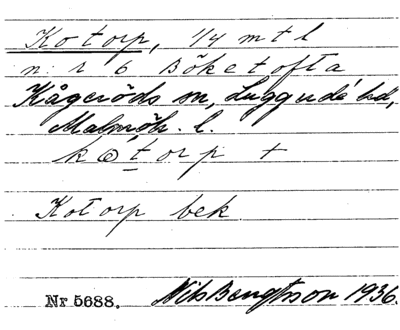 Kotorp, 1/4 mtl
nr 6 Böketofta
Kågeröds sn, Luggude hd,
Malmöh. l.
kotorp +
Kotorp bek.
Nr 5688. Nils Bengtsson 1936.